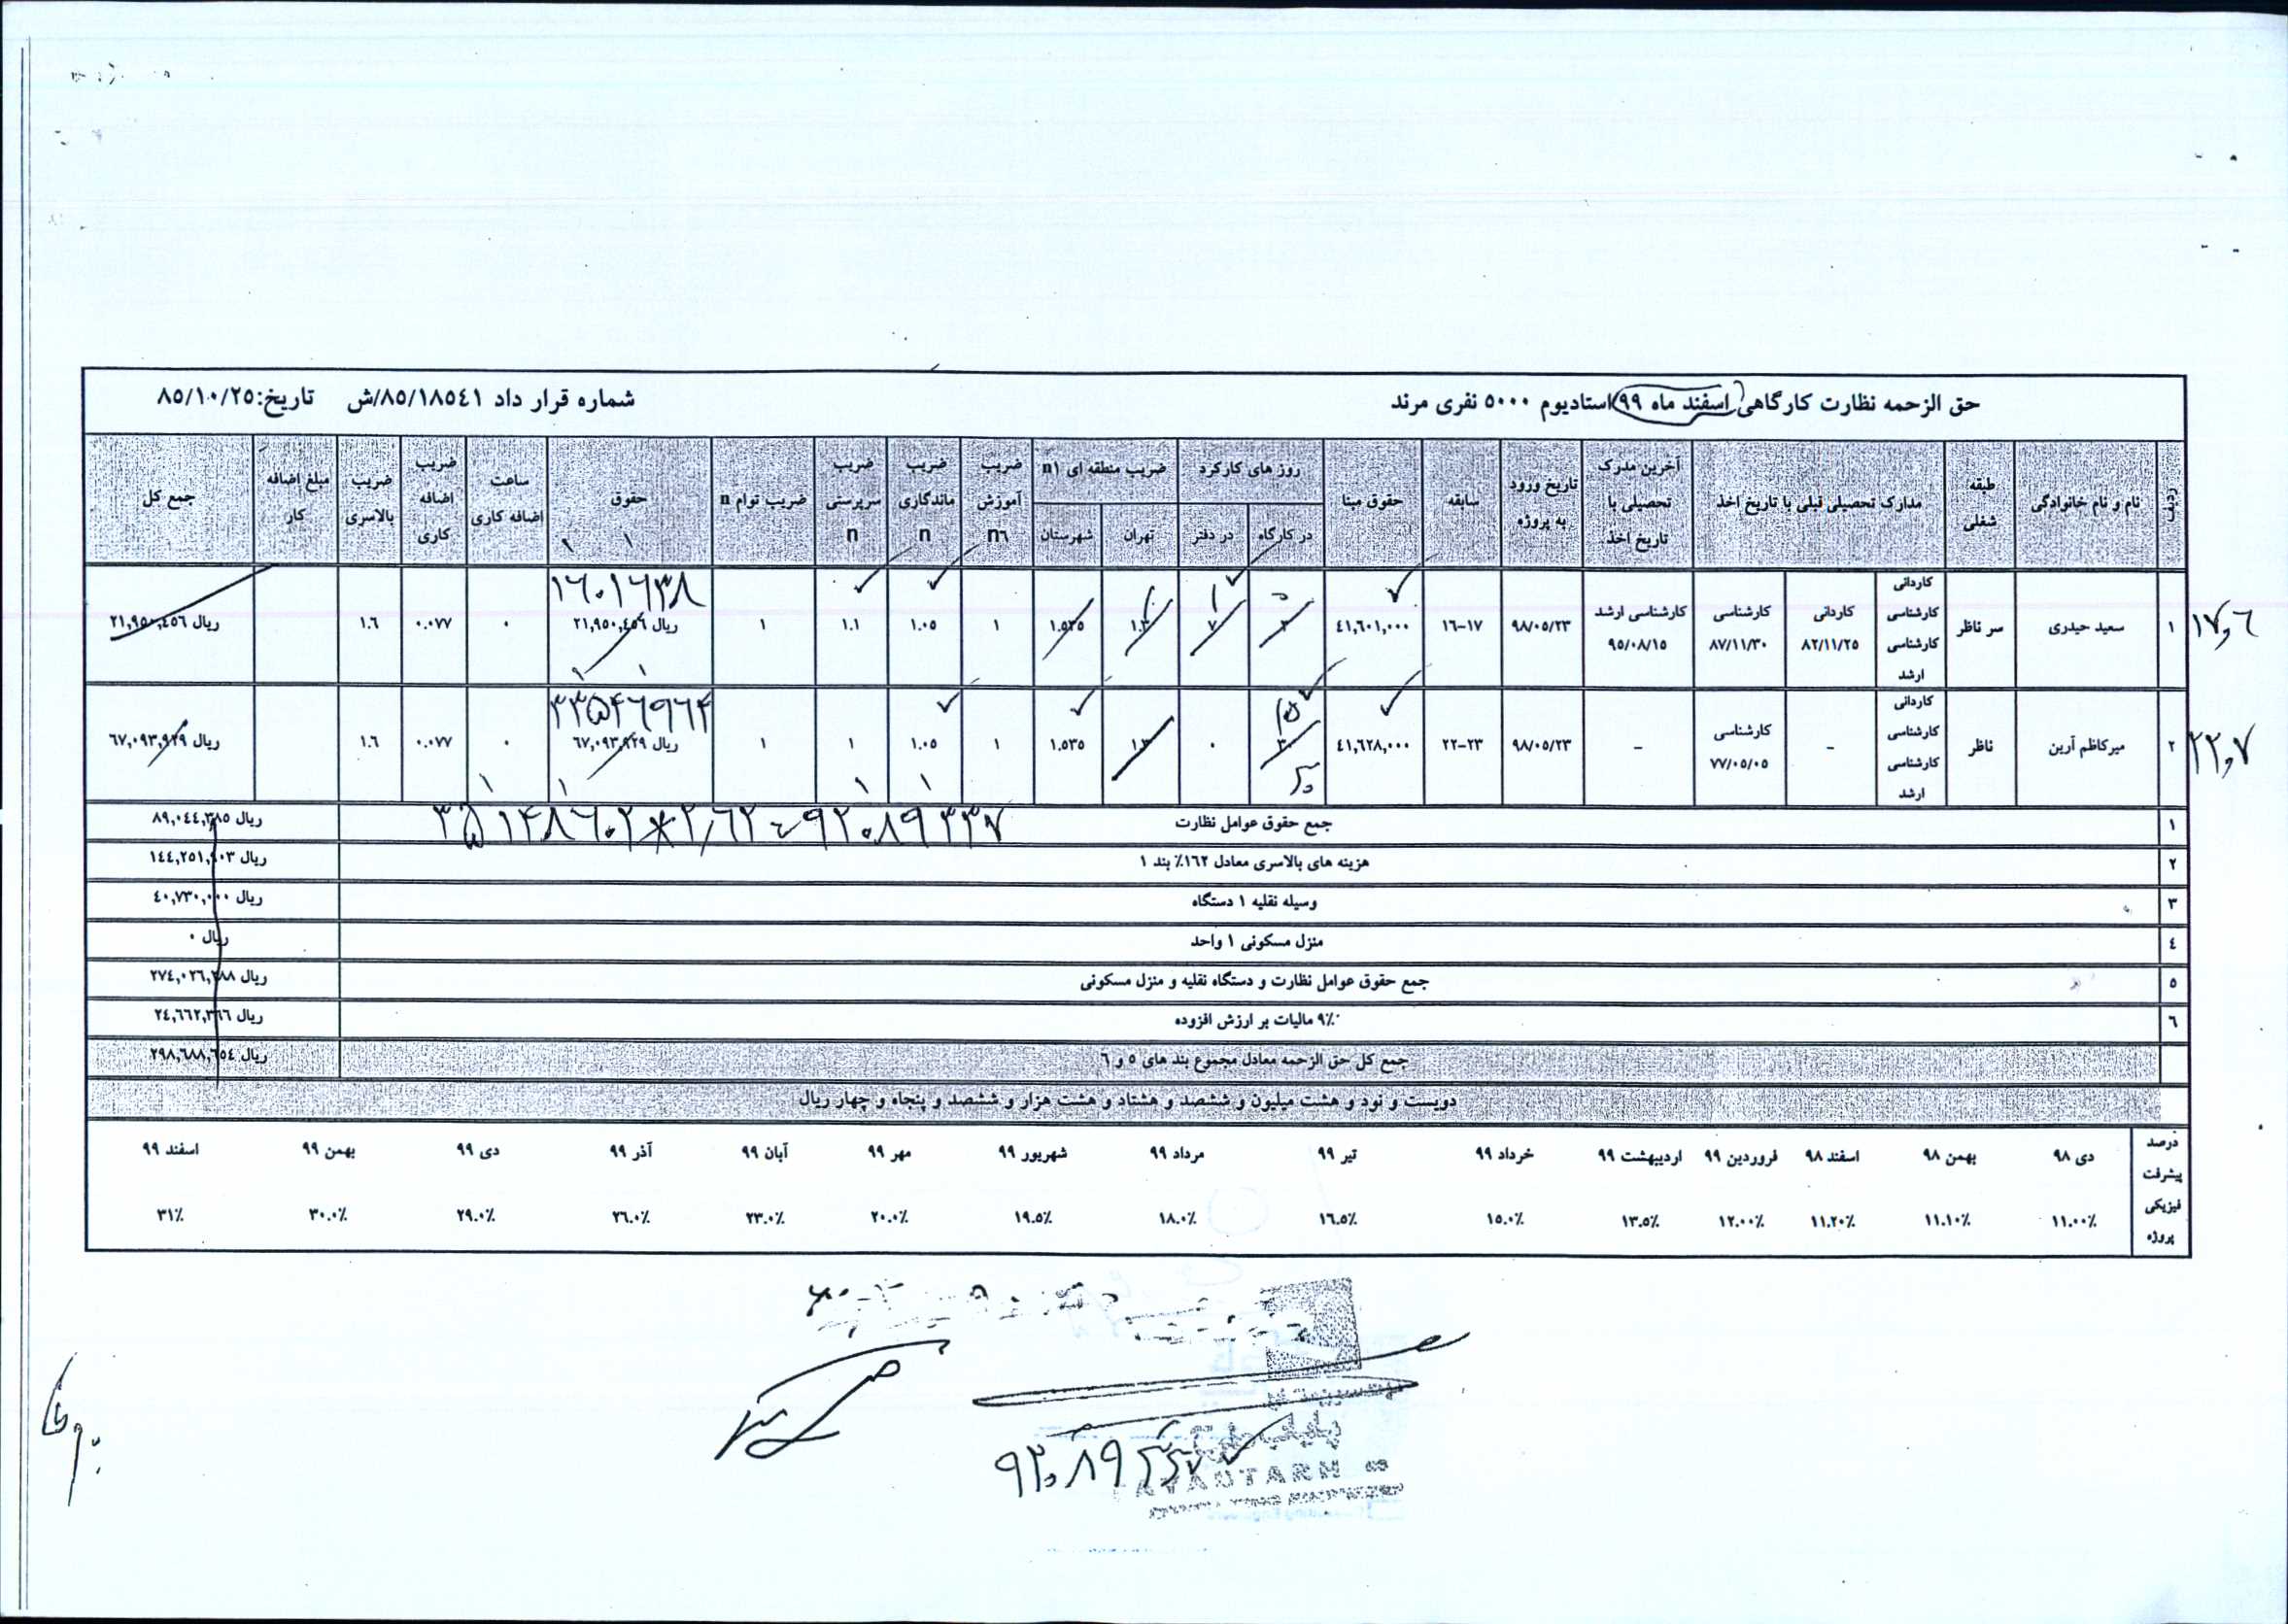 حق الزحمه نظارت کارگاهی اسفند ماه ۹۹ استادیوم ۵۰۰۰ نفری مرند شماره قرار داد ۸۵/۱۸۵٤۱/ش تاریخ:۸۵/۱۰/۲۵
ردیف نام و نام خانوادگی طبقه شغلی مدارک تحصیلی قبلی با تاریخ اخذ آخرین مدرک تحصیلی با تاریخ اخذ تاریخ ورود به پروژه سابقه حقوق مبنا روز های کارکرد ضریب منطقه ای n۱ ضریب آموزش n٦ ضریب ماندگاری n ضریب سرپرستی n ضریب توام n حقوق ساعت اضافه کاری ضریب اضافه کاری ضریب بالاسری مبلغ اضافه کار جمع کل
در کارگاه در دفتر تهران شهرستان
۱۷,٦
۱ سعید حیدری سر ناظر کاردانی کارشناسی کارشناسی ارشد کاردانی ۸۲/۱۱/۲۵ کارشناسی ۸۷/۱۱/۳۰ کارشناسی ارشد ۹۵/۰۸/۱۵ ۹۸/۰۵/۲۳ ۱۶-۱۷ ٤۱,٦۰۱,۰۰۰ ۷ ۱.۵۳۵ ۱ ۱.۰۵ ۱.۱ ۱ ۱٦۰۱٦۳۸ ریال ۲۱,۹۵۰,٤۵٦ ۰ ۰.۰۷۷ ۱.٦ ریال ۲۱,۹۵۰,٤۵٦
۲۲,۷
۲ میرکاظم آرین ناظر کاردانی کارشناسی کارشناسی ارشد - کارشناسی ۷۷/۰۵/۰۵ - ۹۸/۰۵/۲۳ ۲۲-۲۳ ٤۱,٦۲۸,۰۰۰ ۳۰ ۰ ۱.۵۳۵ ۱ ۱.۰۵ ۱ ۱ ۳۳۵۴٦۹٦۴ ریال ٦۷,۰۹۳,۹۲۹ ۰ ۰.۰۷۷ ۱.٦ ریال ٦۷,۰۹۳,۹۲۹
۱ جمع حقوق عوامل نظارت ۳۵۱۴۸٦۰۲*۲,٦۲=۹۲۰۸۹۳۳۷ ریال ۸۹,۰٤٤,۳۸۵
۲ هزینه های بالاسری معادل ۱٦۲٪ بند ۱ ریال ۱٤٤,۲۵۱,۹۰۳
۳ وسیله نقلیه ۱ دستگاه ریال ٤۰,۷۳۰,۰۰۰
٤ منزل مسکونی ۱ واحد ریال ۰
۵ جمع حقوق عوامل نظارت و دستگاه نقلیه و منزل مسکونی ریال ۲۷٤,۰۲٦,۲۸۸
٦ ۹٪ مالیات بر ارزش افزوده ریال ۲٤,٦٦۲,۳٦٦
جمع کل حق الزحمه معادل مجموع بند های ۵ و ٦ ریال ۲۹۸,٦۸۸,٦۵٤
دویست و نود و هشت میلیون و ششصد و هشتاد و هشت هزار و ششصد و پنجاه و چهار ریال
درصد پیشرفت فیزیکی پروژه دی ۹۸ بهمن ۹۸ اسفند ۹۸ فروردین ۹۹ اردیبهشت ۹۹ خرداد ۹۹ تیر ۹۹ مرداد ۹۹ شهریور ۹۹ مهر ۹۹ آبان ۹۹ آذر ۹۹ دی ۹۹ بهمن ۹۹ اسفند ۹۹
۱۱.۰۰٪ ۱۱.۱۰٪ ۱۱.۲۰٪ ۱۲.۰۰٪ ۱۳.۵٪ ۱۵.۰٪ ۱٦.۵٪ ۱۸.۰٪ ۱۹.۵٪ ۲۰.۰٪ ۲۳.۰٪ ۲٦.۰٪ ۲۹.۰٪ ۳۰.۰٪ ۳۱٪
۹۲۰۸۹۳۳۷